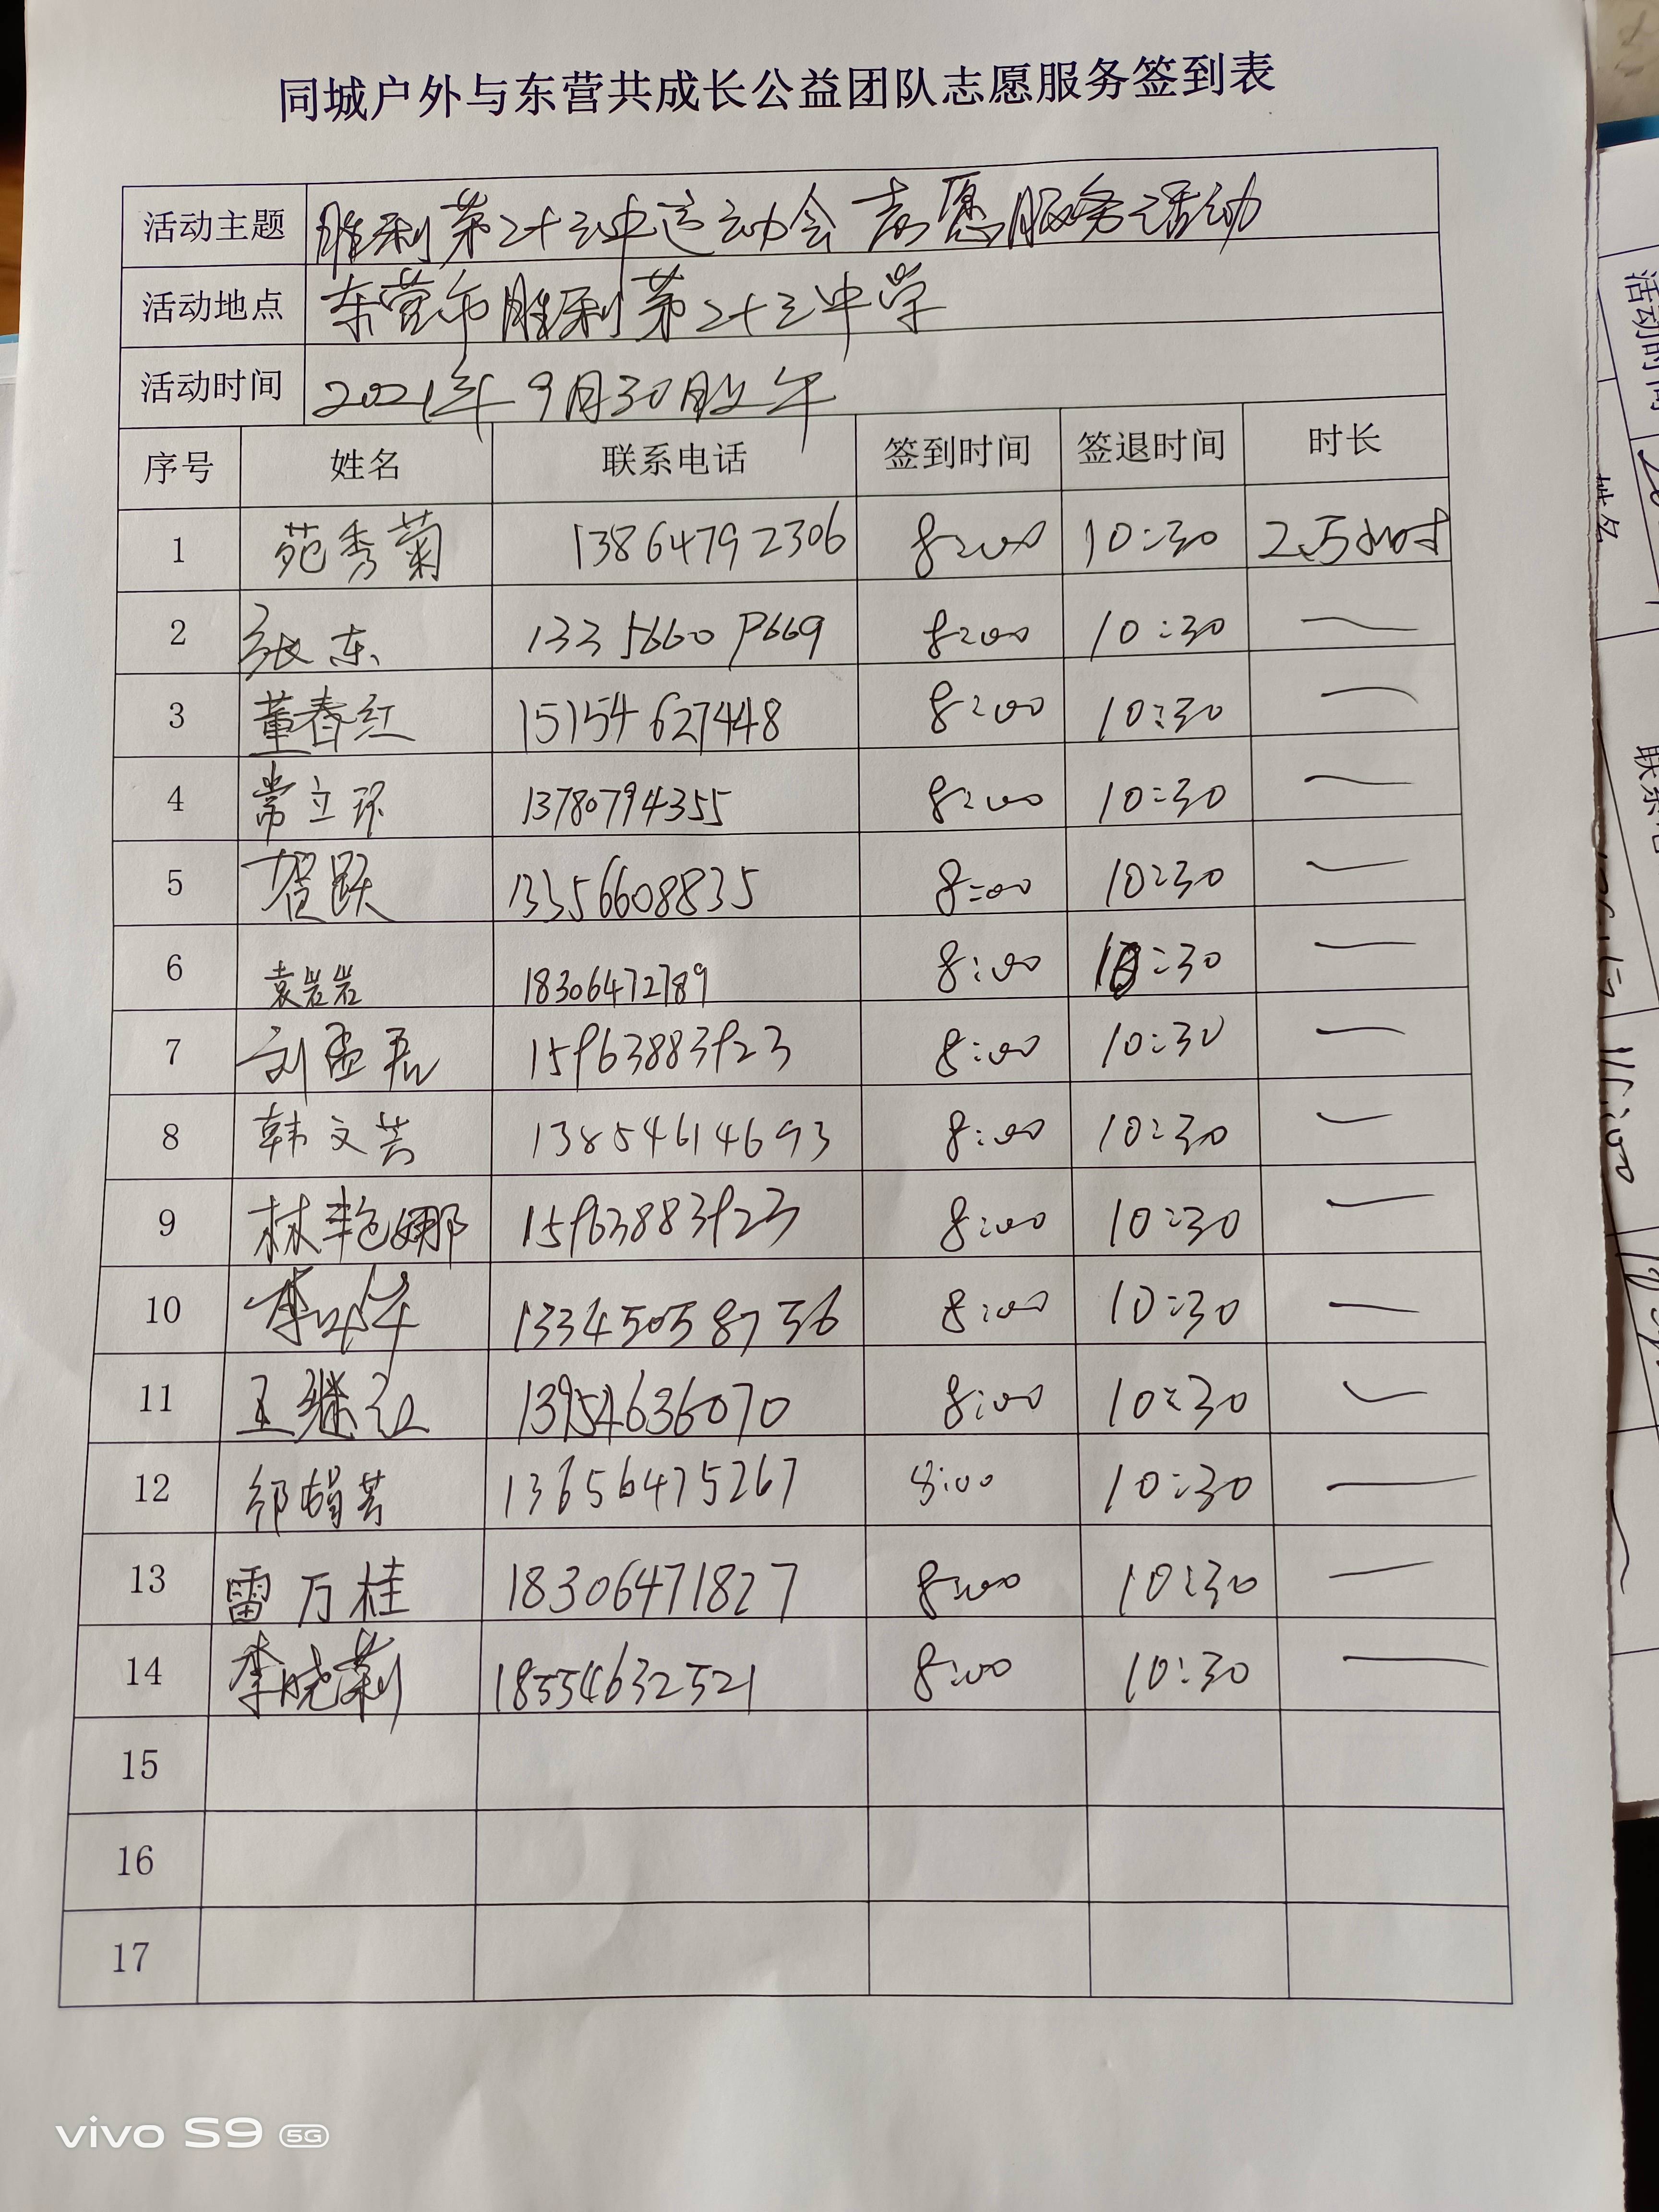 同城户外与东营共成长公益团队志愿服务签到表
活动主题 胜利第二十三中运动会志愿服务活动
活动地点 东营市胜利第二十三中学
活动时间 2021年9月30日上午
序号 姓名 联系电话 签到时间 签退时间 时长
1 苑秀菊 13864792306 8:00 10:30 2.5小时
2 张东 13356609669 8:00 10:30 —
3 董春红 15154627448 8:00 10:30 —
4 常立环 13780794355 8:00 10:30 —
5 贺跃 13356608835 8:00 10:30 —
6 袁岩岩 18306472789 8:00 10:30 —
7 刘孟 15963883923 8:00 10:30 —
8 韩文芸 13854614693 8:00 10:30 —
9 林艳娜 15963883923 8:00 10:30 —
10 李 13345058756 8:00 10:30 —
11 王继红 13954636070 8:00 10:30 —
12 邹娟芸 13656475267 8:00 10:30 —
13 雷万桂 18306471827 8:00 10:30 —
14 李晓莉 18554632521 8:00 10:30 —
15
16
17
vivo S9 5G
活动时间
姓名